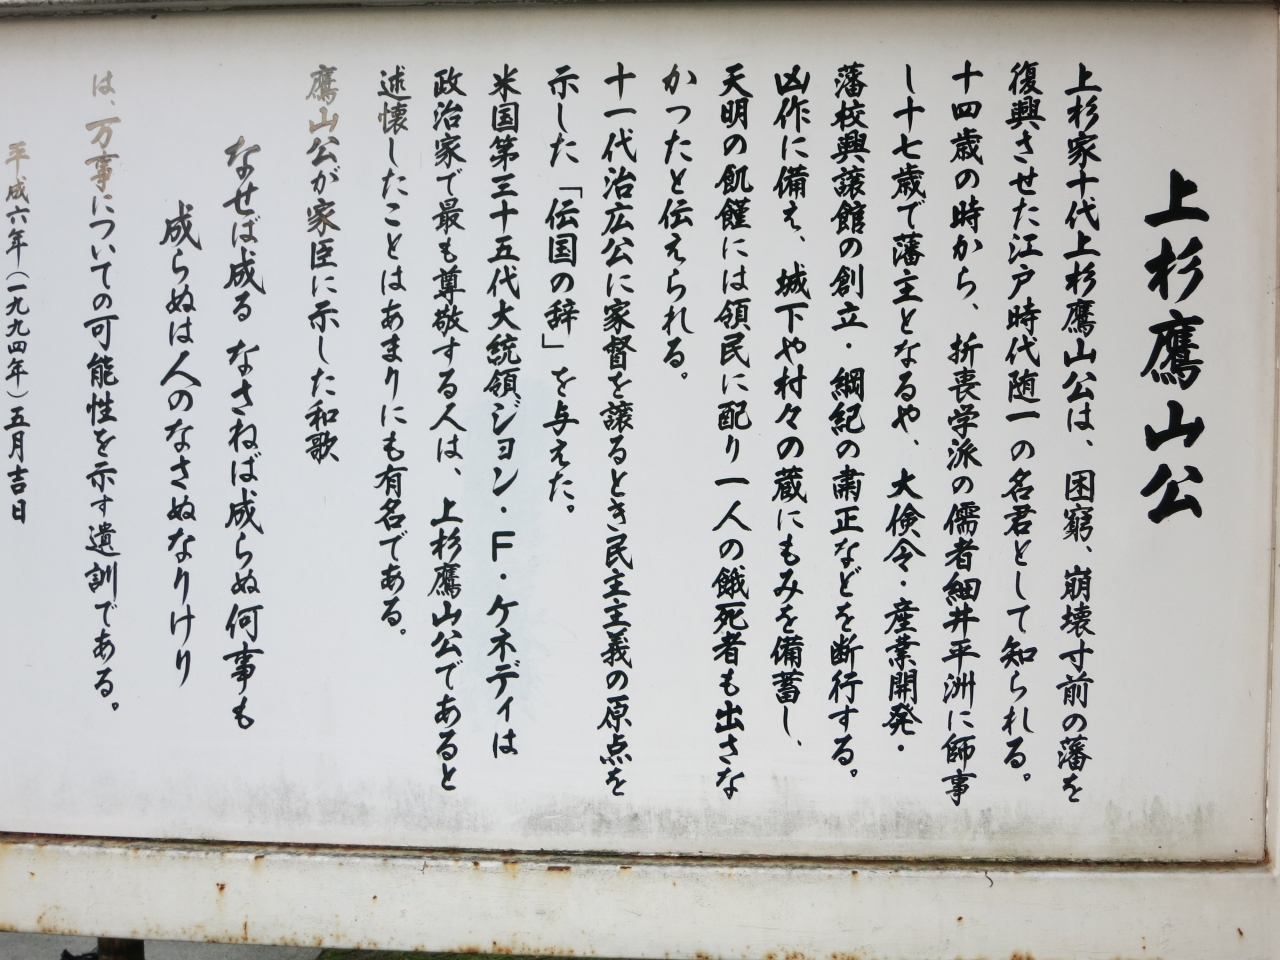 上杉鷹山公
上杉家十代上杉鷹山公は、困窮、崩壊寸前の藩を
復興させた江戸時代随一の名君として知られる。
十四歳の時から、折衷学派の儒者細井平洲に師事
し十七歳で藩主となるや、大倹令・産業開発・
藩校興譲館の創立・綱紀の粛正などを断行する。
凶作に備え、城下や村々の蔵にもみを備蓄し、
天明の飢饉には領民に配り一人の餓死者も出さな
かつたと伝えられる。
十一代治広公に家督を譲るとき民主主義の原点を
示した「伝国の辞」を与えた。
米国第三十五代大統領ジョン・F・ケネディは
政治家で最も尊敬する人は、上杉鷹山公であると
述懐したことはあまりにも有名である。
鷹山公が家臣に示した和歌
なせば成る なさねば成らぬ何事も
成らぬは人のなさぬなりけり
は、万事についての可能性を示す遺訓である。
平成六年(一九九四年)五月吉日